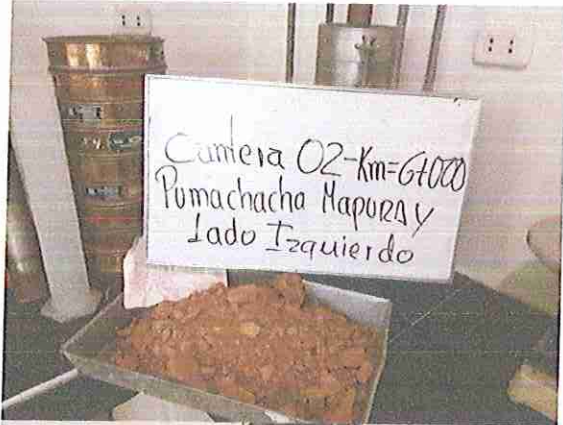 Cantera 02-Km=6+000
Pumachacha Mapuray
Lado Izquierdo